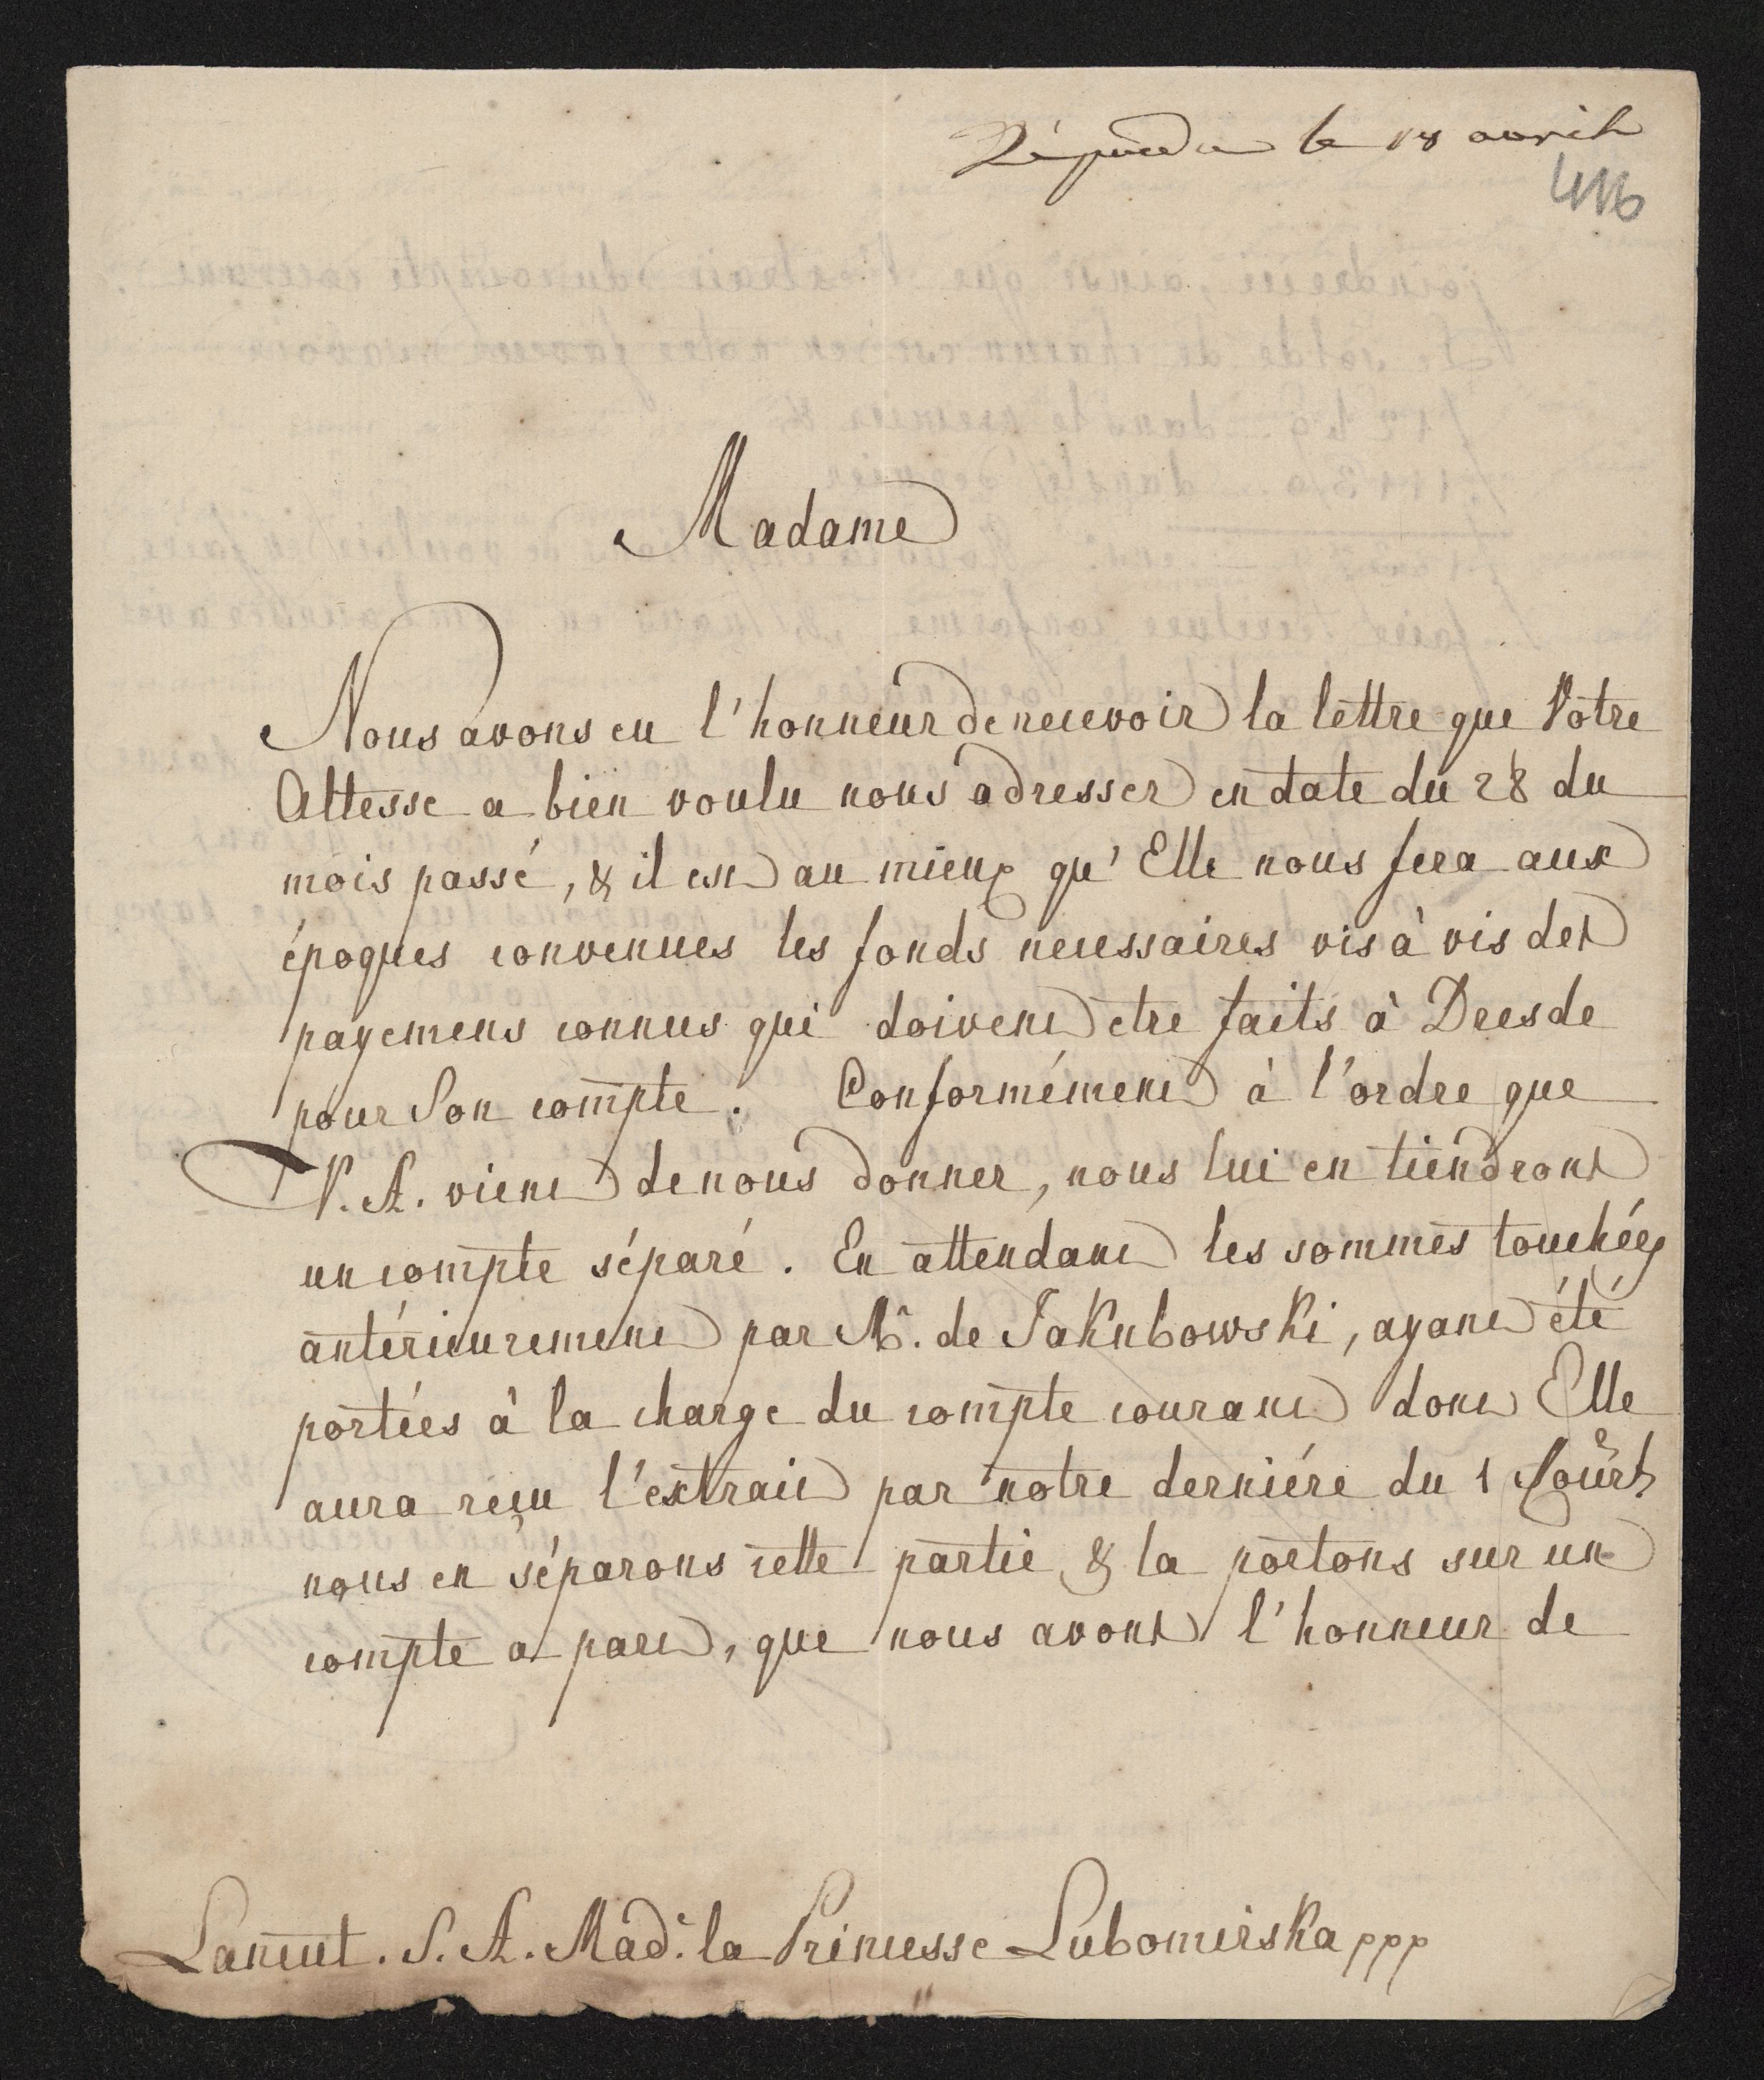 Répondu le 18 avril
416
Madame
Nous avons eu l'honneur de recevoir la lettre que Votre
Altesse a bien voulu nous adresser en date du 28 du
mois passé, & il est au mieux qu'Elle nous fera aux
époques convenues les fonds necessaires vis à vis des
payemens connus qui doivent etre faits à Dresde
pour Son compte. Conformément à l'ordre que
V. A. vient de nous donner, nous lui en tiendrons
un compte séparé. En attendant les sommes touchées
antérieurement par Mr. de Jakubowski, ayant été
portées à la charge du compte courant dont Elle
aura reçu l'extrait par notre derniére du 1 Court
nous en séparons cette partie & la portons sur un
compte a part, que nous avons l'honneur de
Lancut. S. A. Made. la Princesse Lubomirska ppp